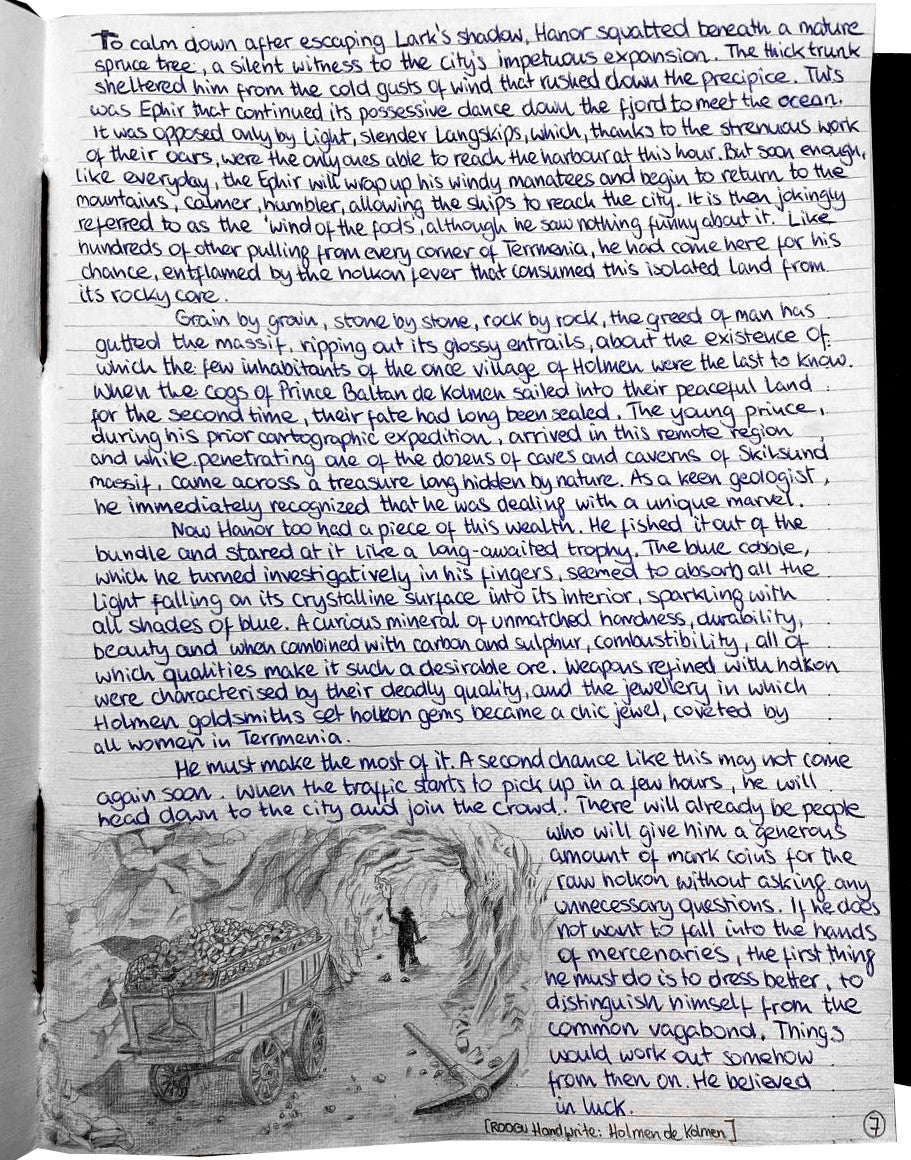 To calm down after escaping Lark's shadow, Hanor squatted beneath a mature
spruce tree, a silent witness to the city's impetuous expansion. The thick trunk
sheltered him from the cold gusts of wind that rushed down the precipice. This
was Ephir that continued its possessive dance down the fjord to meet the ocean.
It was opposed only by light, slender langskips, which, thanks to the strenuous work
of their oars, were the only ones able to reach the harbour at this hour. But soon enough,
like everyday, the Ephir will wrap up his windy manatees and begin to return to the
mountains, calmer, humbler, allowing the ships to reach the city. It is then jokingly
referred to as the 'wind of the fools', although he saw nothing funny about it. Like
hundreds of other pulling from every corner of Terrmenia, he had come here for his
chance, entflamed by the holkon fever that consumed this isolated land from
its rocky core.
Grain by grain, stone by stone, rock by rock, the greed of man has
gutted the massif, ripping out its glossy entrails, about the existence of
which the few inhabitants of the once village of Holmen were the last to know.
When the cogs of Prince Baltan de Kolmen sailed into their peaceful land
for the second time, their fate had long been sealed. The young prince,
during his prior cartographic expedition, arrived in this remote region
and while penetrating one of the dozens of caves and caverns of Skilsund
massif, came across a treasure long hidden by nature. As a keen geologist,
he immediately recognized that he was dealing with a unique marvel.
Now Hanor too had a piece of this wealth. He fished it out of the
bundle and stared at it like a long-awaited trophy. The blue cobble,
which he turned investigatively in his fingers, seemed to absorb all the
light falling on its crystalline surface into its interior, sparkling with
all shades of blue. A curious mineral of unmatched hardness, durability,
beauty and when combined with carbon and sulphur, combustibility, all of
which qualities make it such a desirable ore. Weapons refined with holkon
were characterised by their deadly quality, and the jewellery in which
Holmen goldsmiths set holkon gems became a chic jewel, coveted by
all women in Terrmenia.
He must make the most of it. A second chance like this may not come
again soon. When the traffic starts to pick up in a few hours, he will
head down to the city and join the crowd. There will already be people
who will give him a generous
amount of mark coins for the
raw holkon without asking any
unnecessary questions. If he does
not want to fall into the hands
of mercenaries, the first thing
he must do is to dress better, to
distinguish himself from the
common vagabond. Things
would work out somehow
from then on. He believed
in luck.
[ROOGU Handwrite: Holmen de Kolmen]
7